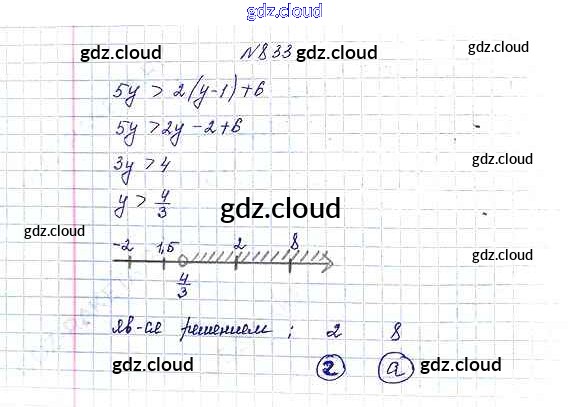 gdz.cloud
gdz.cloud №833 gdz.cloud gdz.cloud
5y > 2(y-1)+6
5y > 2y-2+6
3y > 4 gdz.cloud
y > 4/3 gdz.cloud
gdz.cloud -2 1,5 2 8 gdz.cloud
4/3
яв-ся решением: 2 8
gdz.cloud 2 а gdz.cloud